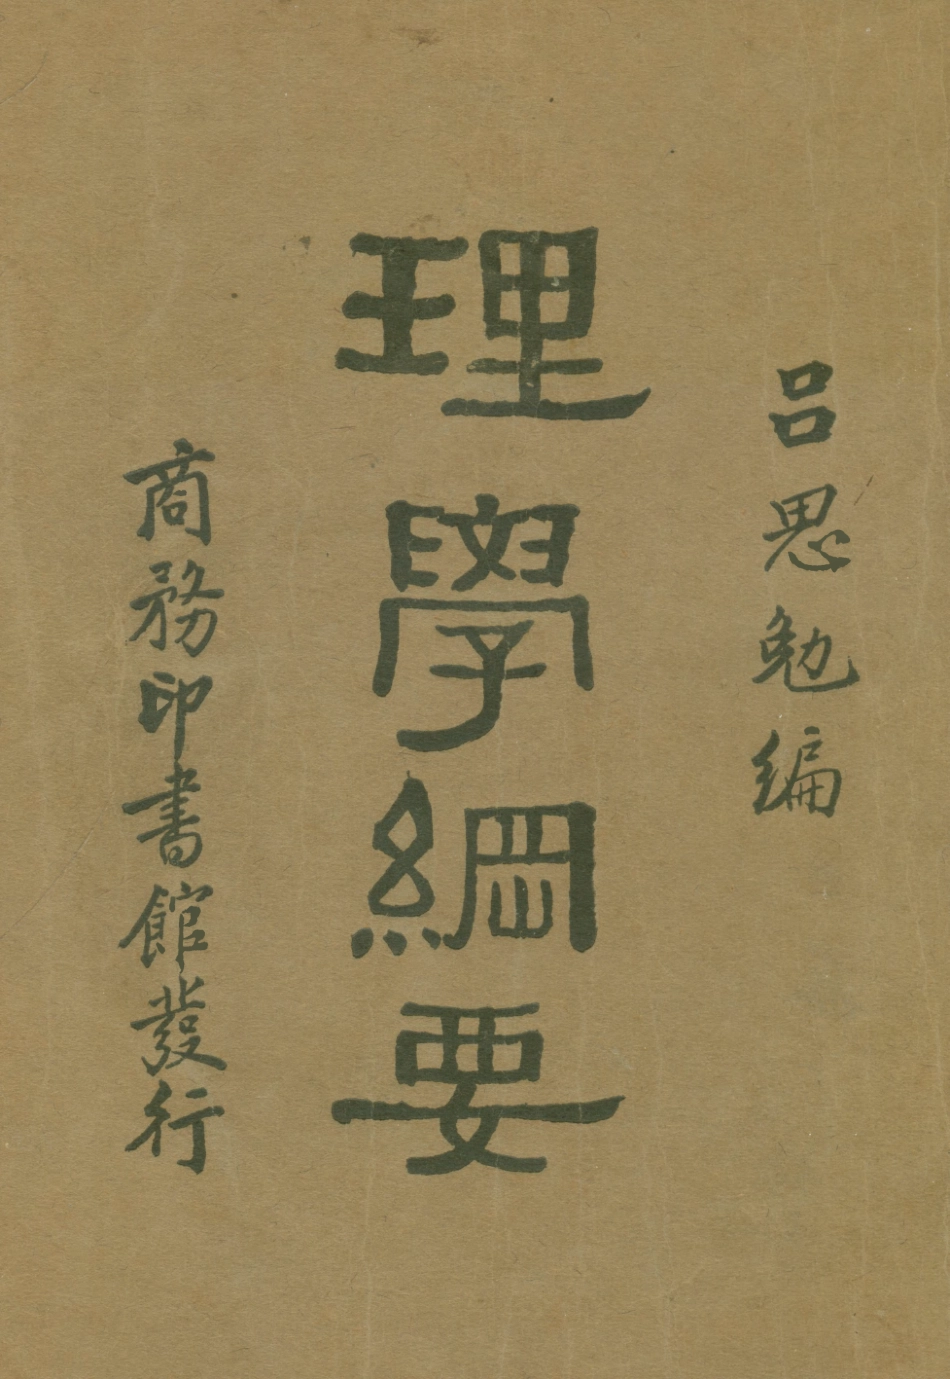 吕思勉编
理學綱要
商務印書館發行